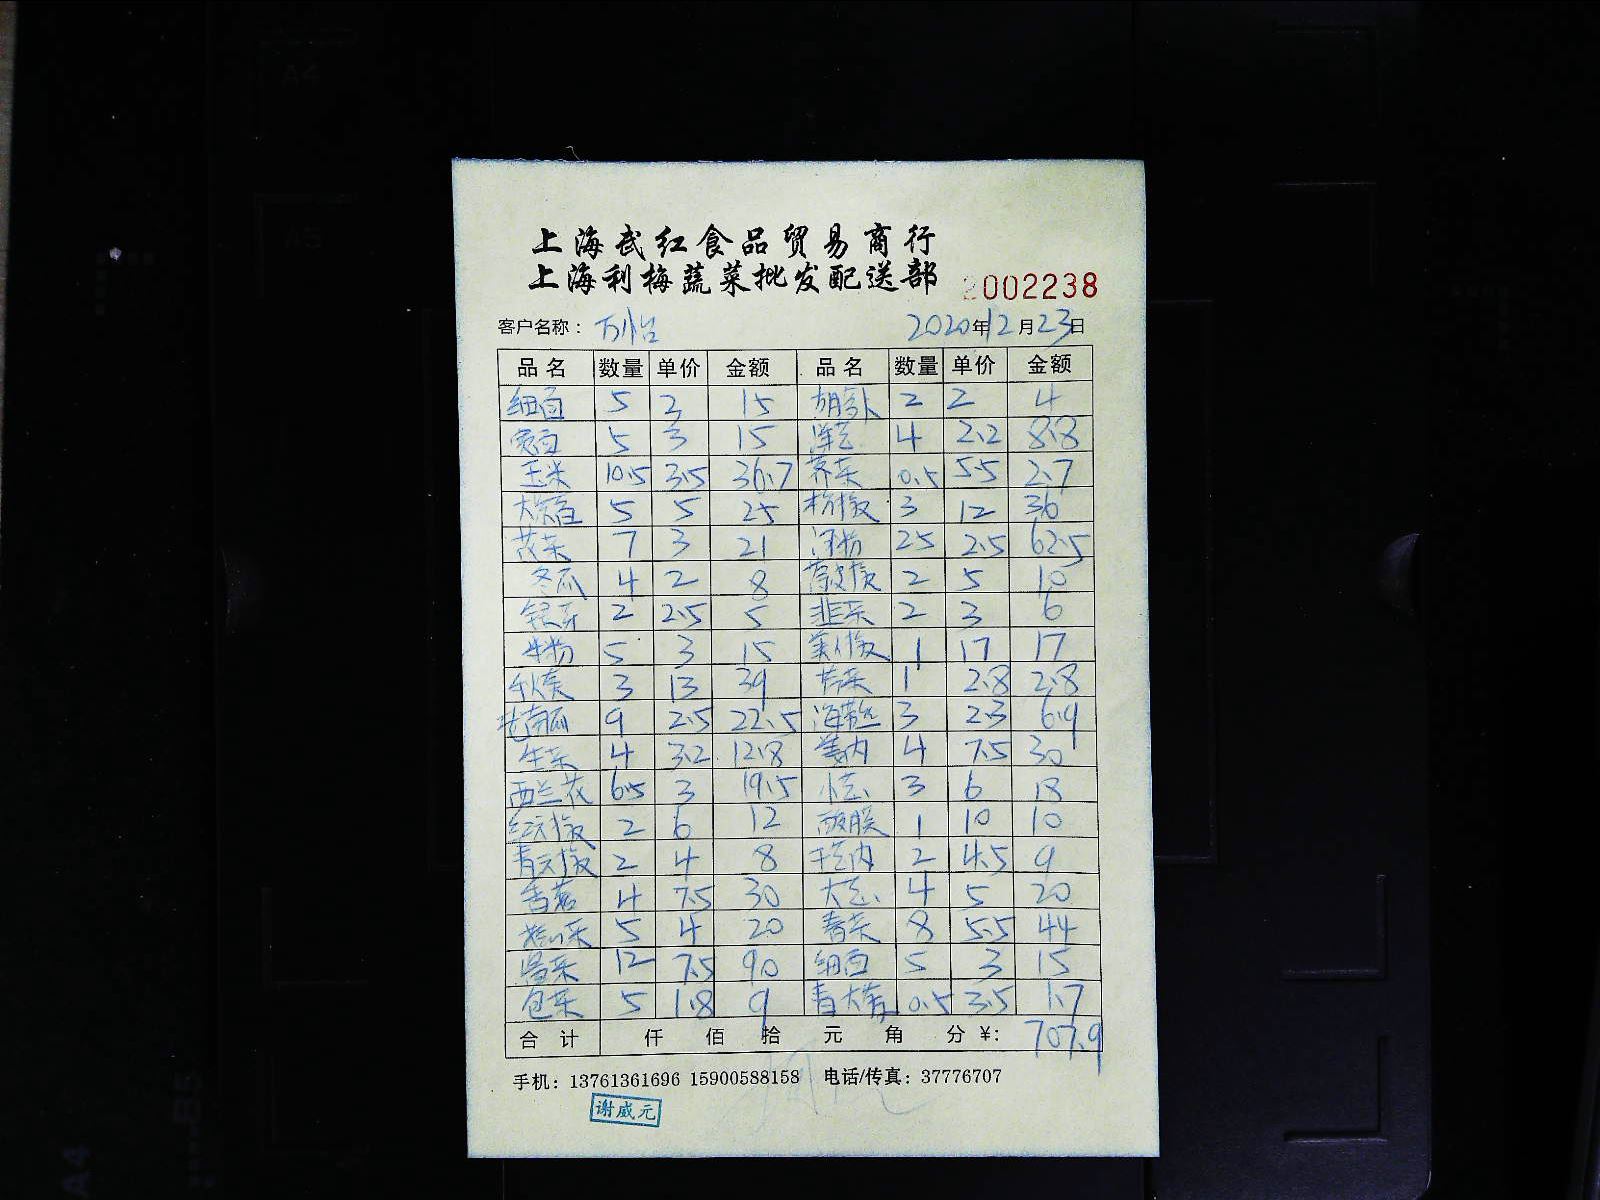 上海武红食品贸易商行
上海利梅蔬菜批发配送部 2002238
客户名称： 万怡 2020年12月23日
品名 数量 单价 金额 品名 数量 单价 金额
细面 5 3 15 2 2 4
宽面 5 3 15 洋芋 4 2.2 8.8
玉米 10.5 3.5 36.7 荠菜 0.5 5.5 2.7
5 5 25 杭椒 3 12 36
7 3 21 河粉 25 2.5 62.5
冬瓜 4 2 8 2 5 10
银芽 2 2.5 5 韭菜 2 3 6
5 3 15 美人椒 1 17 17
3 13 39 1 2.8 2.8
老南瓜 9 2.5 22.5 海带丝 3 2.3 6.9
生菜 4 3.2 12.8 姜肉 4 7.5 30
西兰花 6.5 3 19.5 小葱 3 6 18
红尖椒 2 6 12 1 10 10
青尖椒 2 4 8 2 4.5 9
香菇 4 7.5 30 大葱 4 5 20
5 4 20 青菜 8 5.5 44
12 7.5 90 细面 5 3 15
包菜 5 1.8 9 青大蒜 0.5 3.5 1.7
合计 仟 佰 拾 元 角 分 ¥: 707.9
手机：13761361696 15900588158 电话/传真：37776707
谢威元